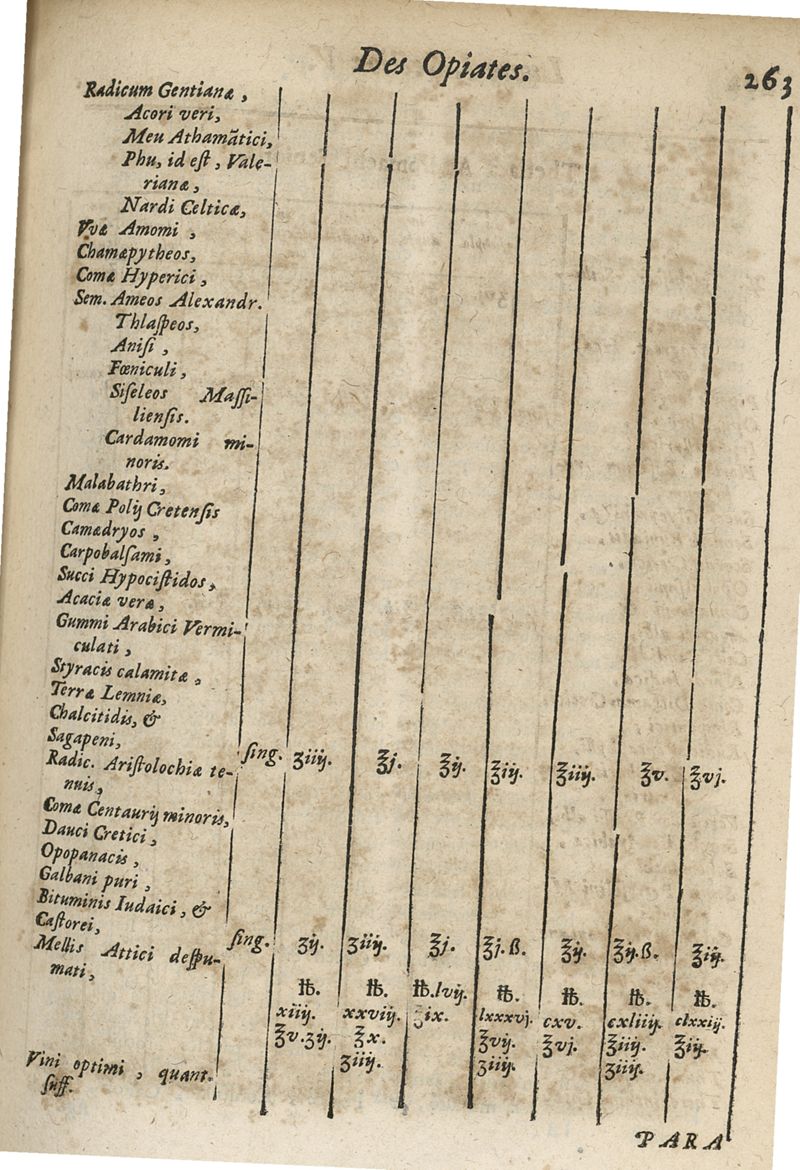 Des Opiates. 263
Radicum Gentianæ,
Acori veri,
Meu Athamãtici,
Phu, id est, Vale-
rianæ,
Nardi Celticæ,
Vvæ Amomi,
Chamæpytheos,
Comæ Hyperici,
Sem. Ameos Alexandr.
Thlaſpeos,
Aniſi,
Fœniculi,
Siſeleos Maſſi-
lienſis.
Cardamomi mi-
noris.
Malabathri,
Comæ Polij Cretenſis
Camædryos,
Carpobalſami,
Succi Hypociſtidos,
Acaciæ veræ,
Gummi Arabici Vermi-
culati,
Styracis calamitæ,
Terræ Lemniæ,
Chalcitidis, &
Sagapeni, ſing. ʒiiij. ℥j. ℥ij. ℥iij. ℥iiij. ℥v. ℥vj.
Radic. Ariſtolochiæ te-
nuis,
Comæ Centaurij minoris,
Dauci Cretici,
Opopanacis,
Galbani puri,
Bituminis Iudaici, &
Caſtorei, ſing. ʒij. ʒiiij. ℥j. ℥j.ß. ℥ij. ℥ij.ß. ℥iij.
Mellis Attici deſpu-
mati,
℔. ℔. ℔.lvij. ℔. ℔. ℔. ℔.
xiiij. xxviij. ℥ix. lxxxvj. cxv. cxliiij. clxxij.
℥v.ʒij. ℥x. ℥vij. ℥vj. ℥iiij. ℥iij.
ʒiiij. ʒiiij. ʒiiij.
Vini optimi, quant.
ſuff.
PARA